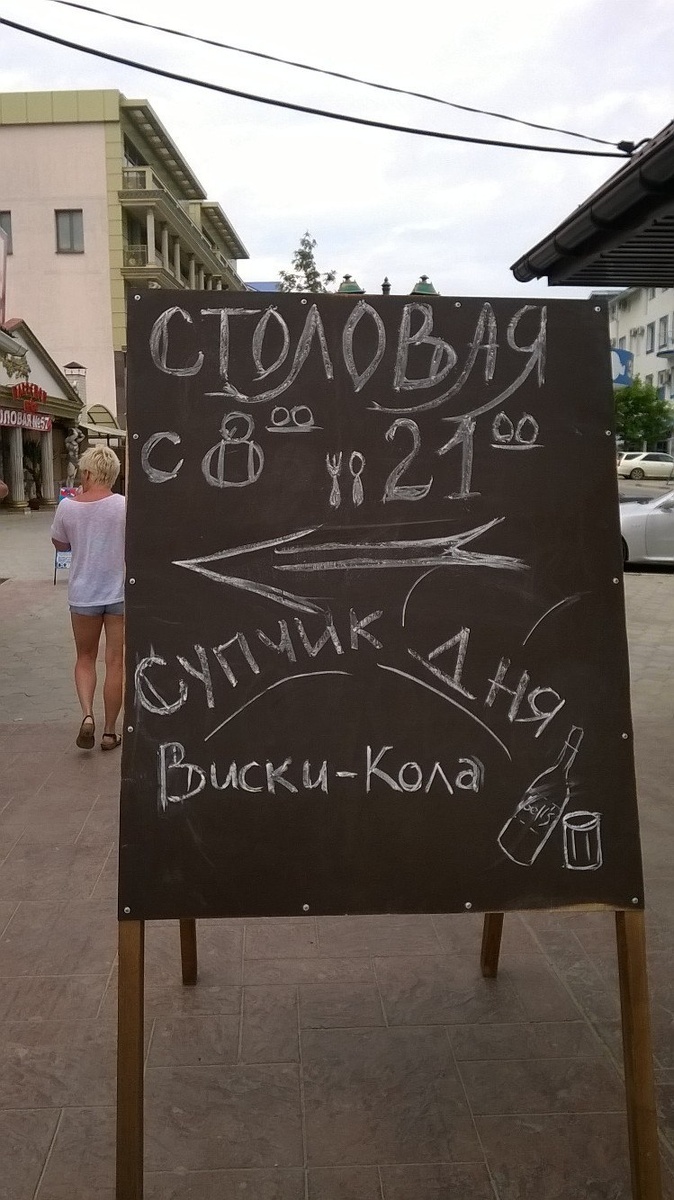 СТОЛОВАЯ
С 8⁰⁰ 21⁰⁰
Супчик Дня
Виски-Кола
Bell's